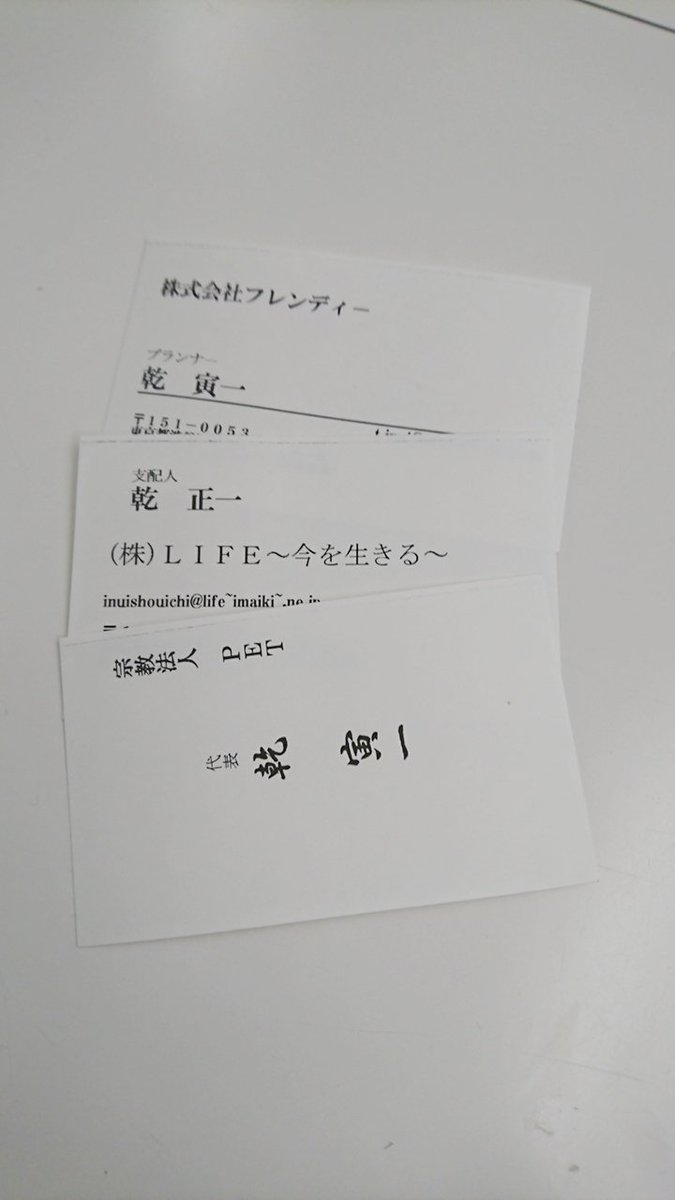 株式会社フレンディー
プランナー
乾　寅一
〒151-0053
支配人
乾　正一
(株)ＬＩＦＥ～今を生きる～
inuishouichi@life~imaiki~.ne.jp
宗教法人　ＰＥＴ
代表
乾　寅一